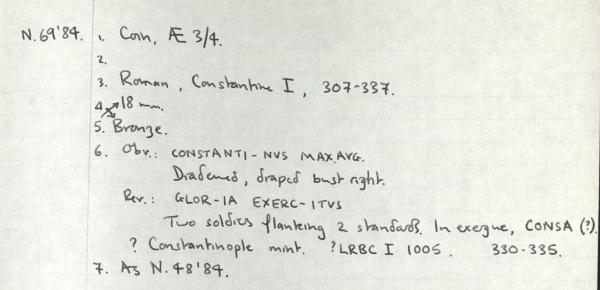 N.69'84. 1. Coin, Æ 3/4.
2.
3. Roman, Constantine I, 307-337.
4. 18 mm.
5. Bronze.
6. Obv.: CONSTANTI-NVS MAX.AVG.
Diademed, draped bust right.
Rev.: GLOR-IA EXERC-ITVS
Two soldiers flanking 2 standards. In exergue, CONSA (?).
? Constantinople mint. ?LRBC I 1005. 330-335.
7. As N.48'84.